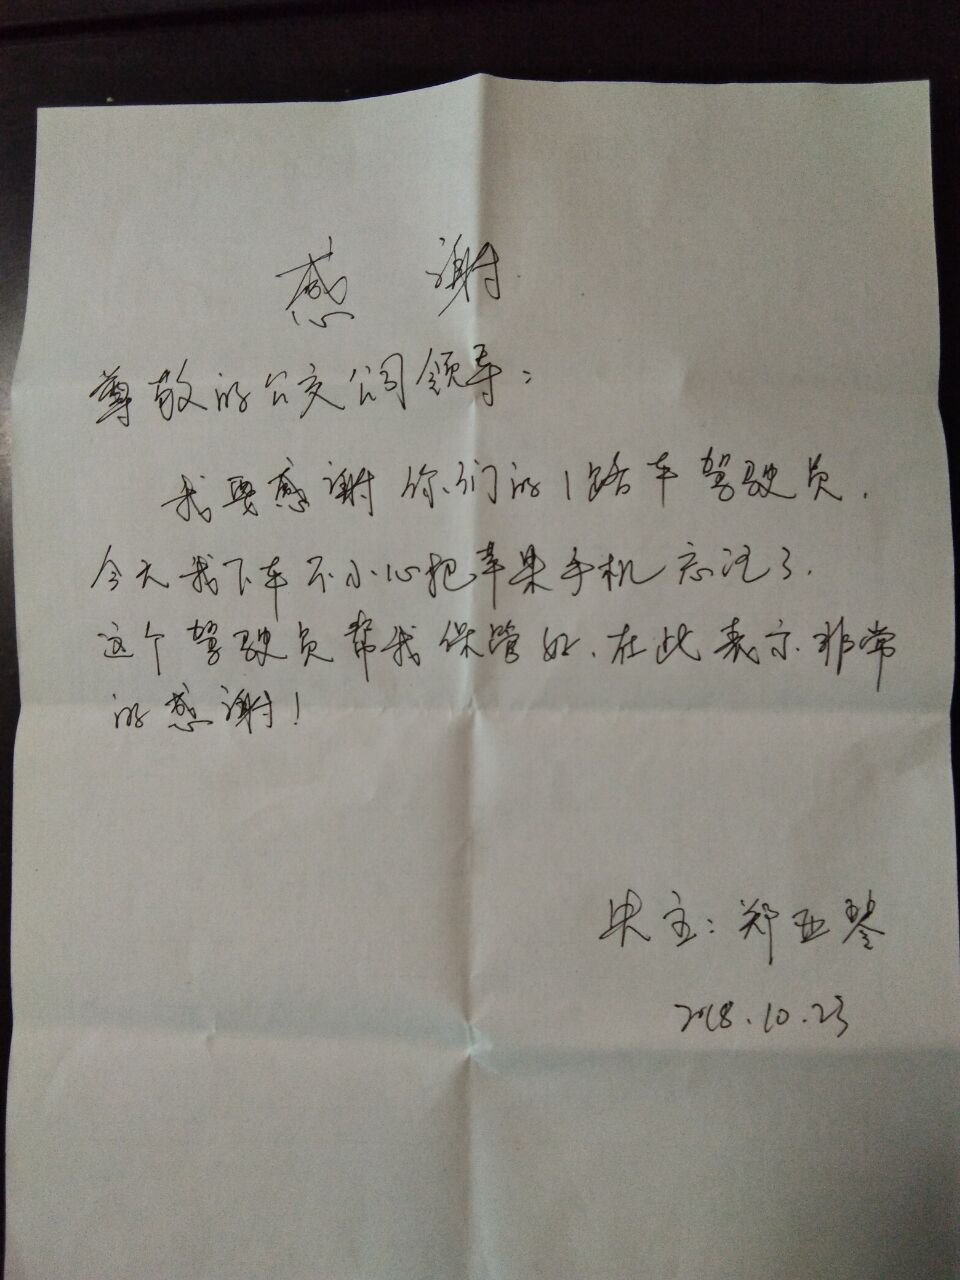 感谢
尊敬的公交公司领导：
我要感谢你们的1路车驾驶员，
今天我下车不小心把苹果手机忘记了，
这个驾驶员帮我保管好，在此表示非常
的感谢！
失主：郑亚琴
2018.10.23